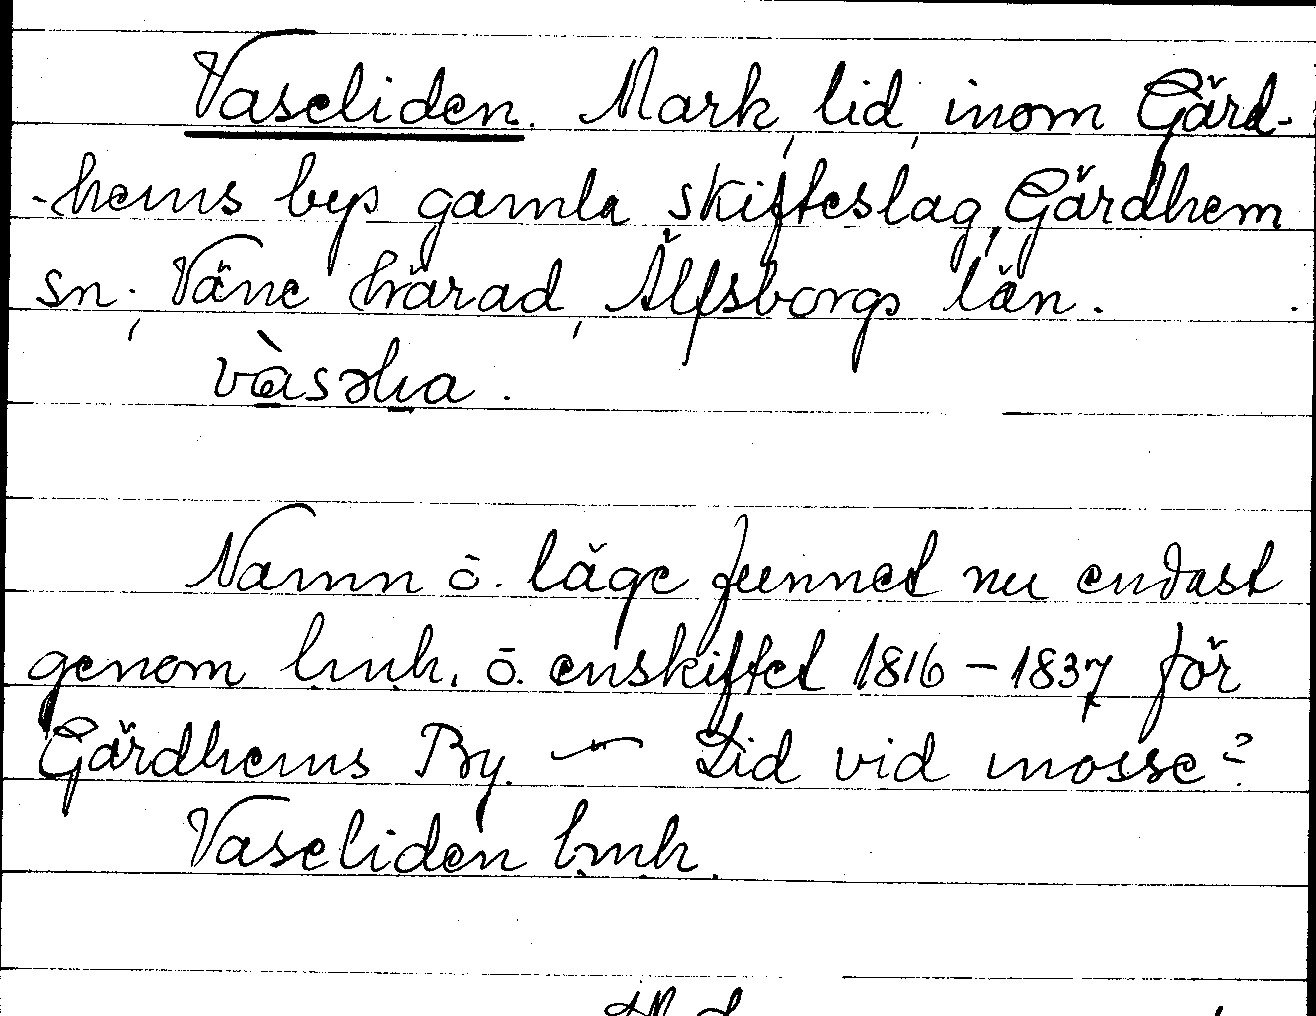 Vaseliden. Mark, lid, inom Gärd-
-hems bys gamla skifteslag, Gärdhem
sn., Väne härad, Älfsborgs län.
Namn o. läge funnet nu endast
genom lmh. o. enskiftet 1816 – 1837 för
Gärdhems By. — Lid vid mosse?
Vaseliden lmh.